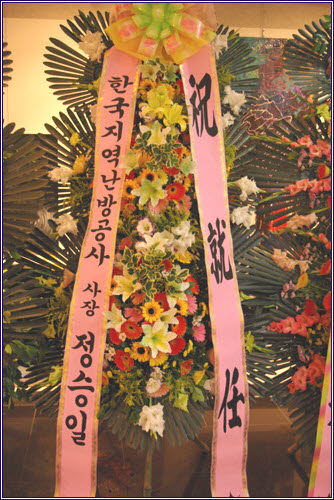 祝就任
한국지역난방공사 사장 정승일